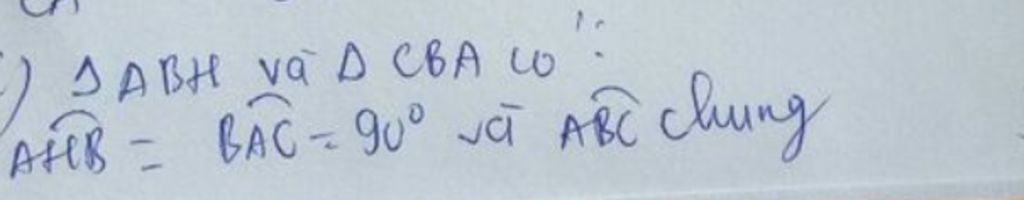 ) Δ ABH và Δ CBA có :
$\widehat{AHB}$ = $\widehat{BAC}$ = 90° và $\widehat{ABC}$ chung